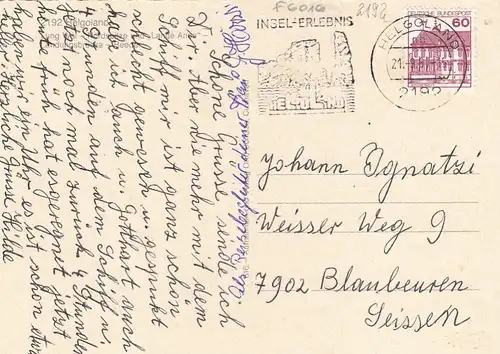 F6016
2192
2192 Helgoland
INSEL-ERLEBNIS
HELGOLAND
HELGOLAND
21.
2192
DEUTSCHE BUNDESPOST
60
Schöne Grüsse sende ich
Dir. Aber nie mehr mit dem
Schiff mir ist ganz schön
schlecht gewesen u. gespukt
habe ich auch u. Gotthart auch
4 Stunden auf dem Schiff u.
jetz noch mal zurück 4 Stunden
heute früh hat es geregnet jetzt
haben wir ein Uhr es ist schon etwas
Herzliche Grüsse Hilde
Als Reisebegleiter deiner
Johann Ignatzi
Weisser Weg 9
7902 Blaubeuren
Seissen